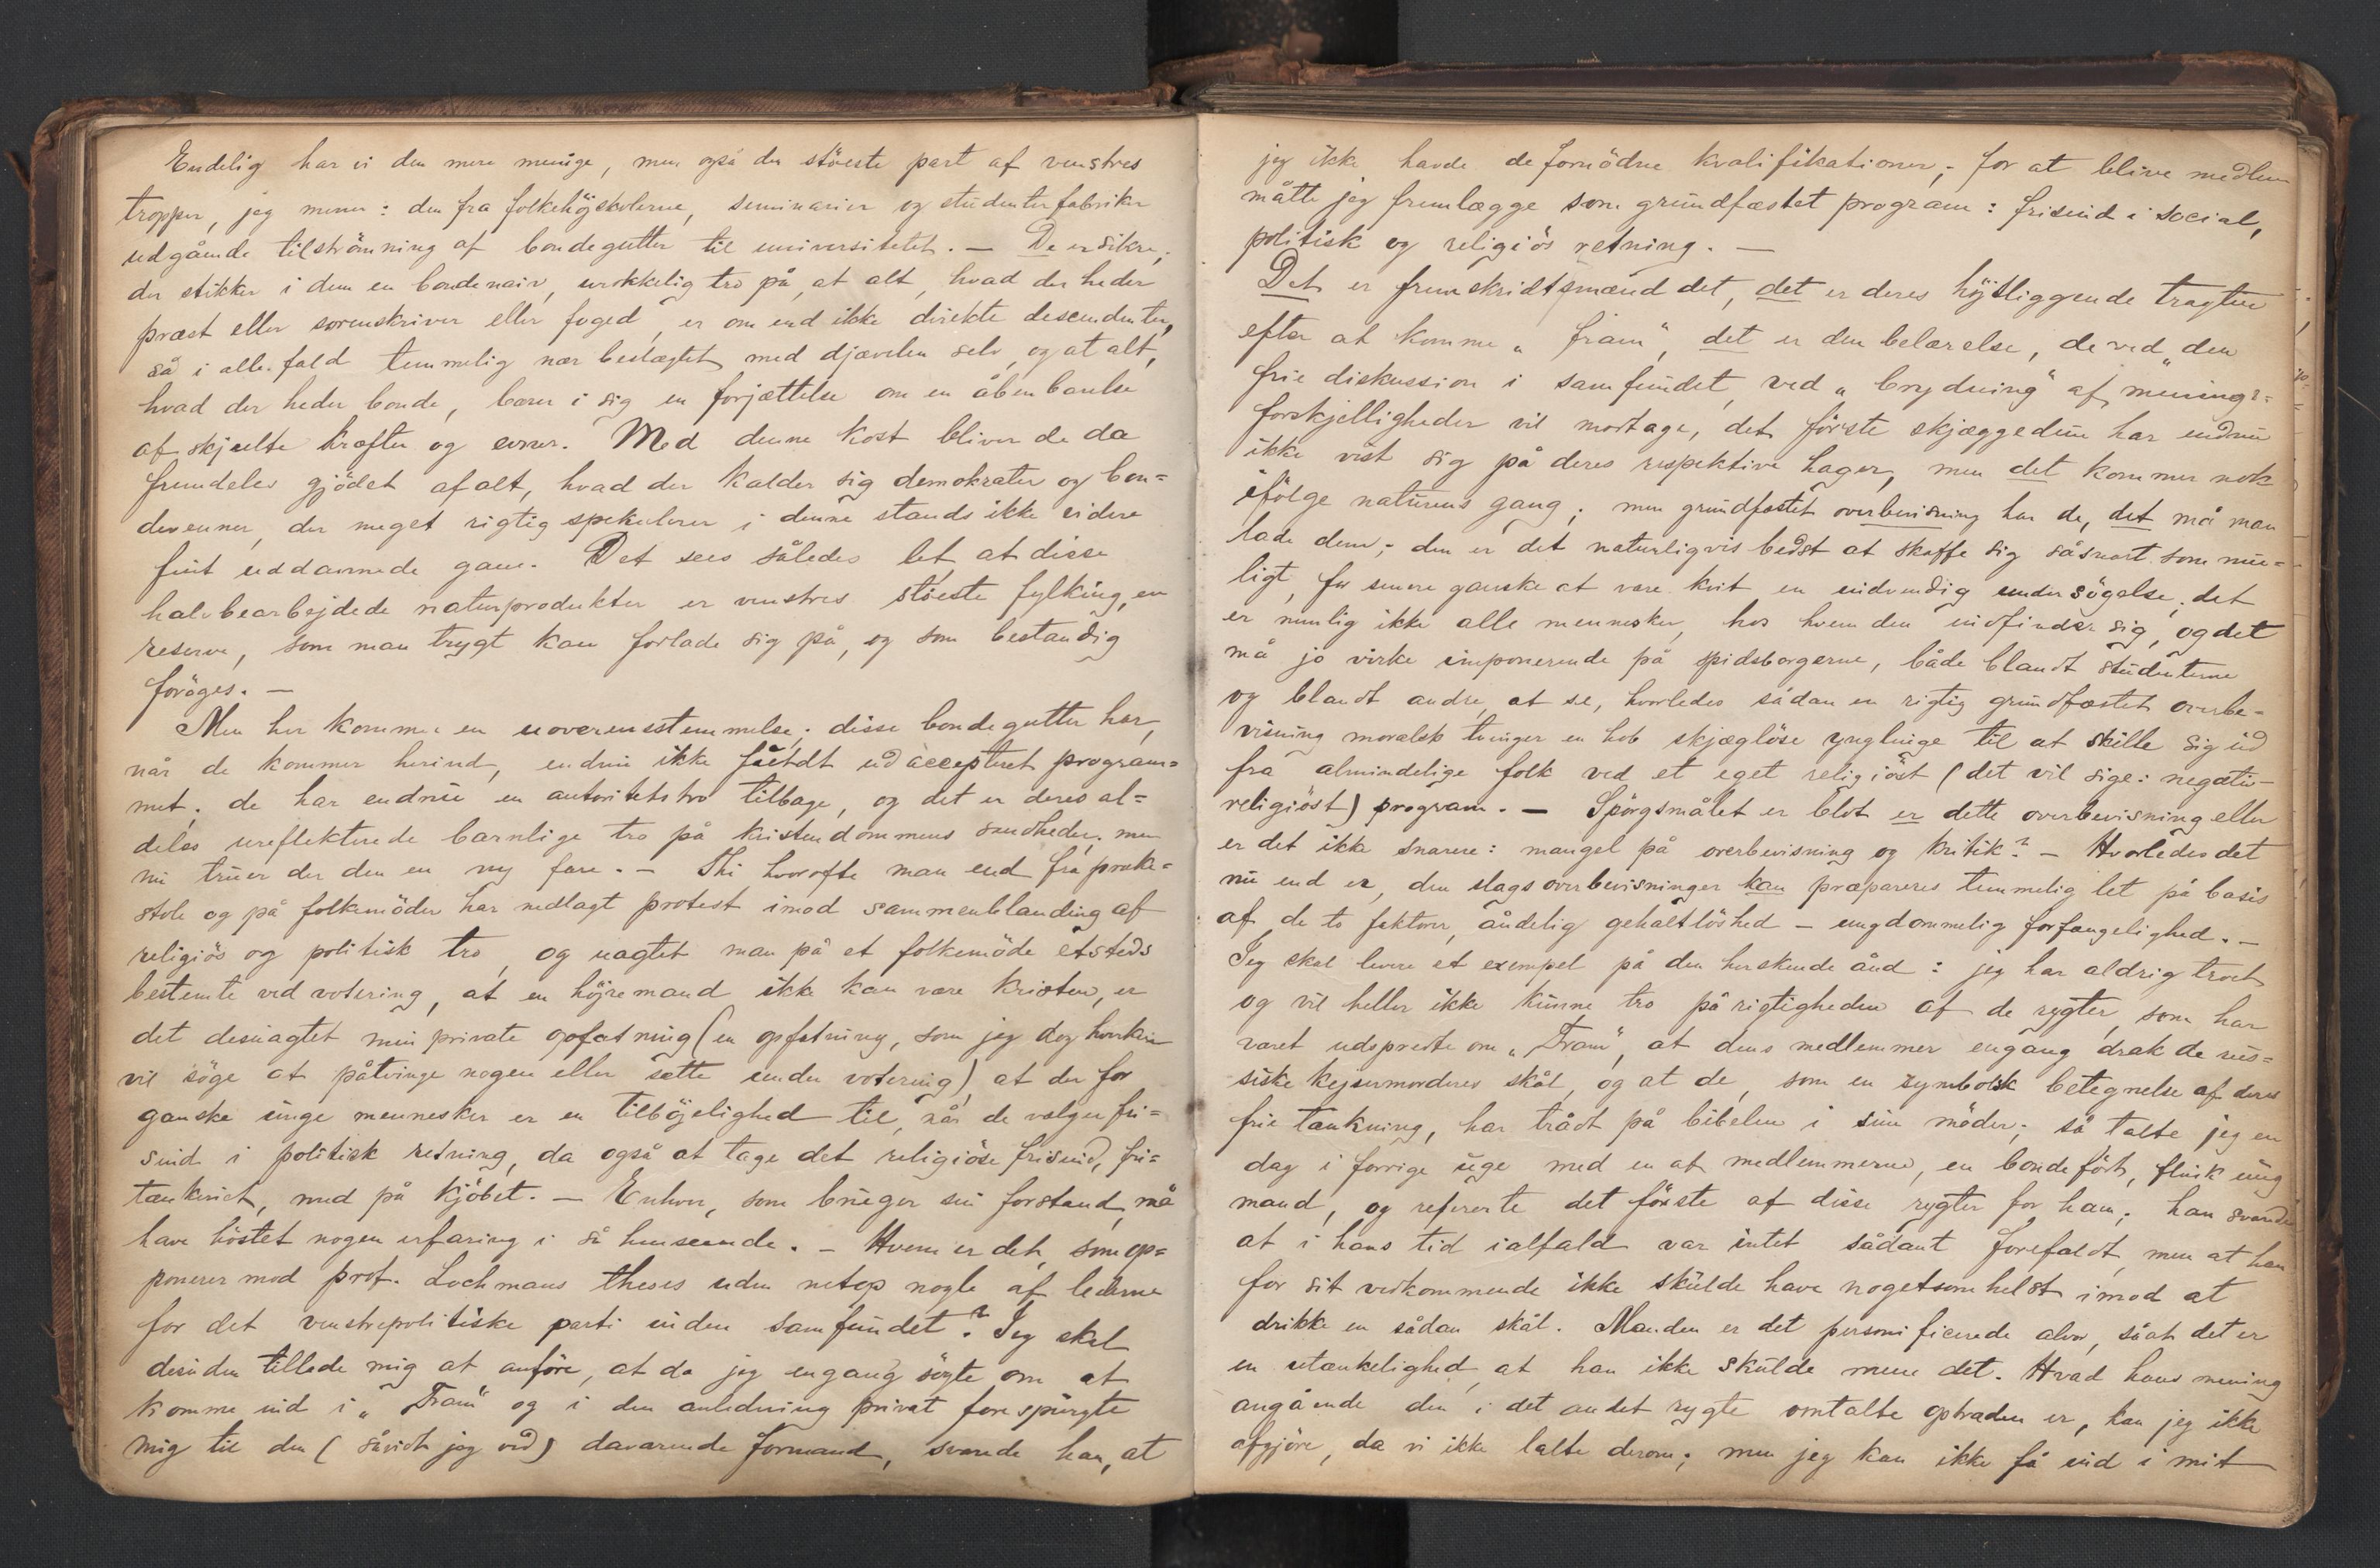 Endelig har vi den mere menige, men også den störeste part af venstres
tropper, jeg mener: den fra folkehöjskolerne, seminarier og studenterfabriker
udgående tilströmning af bondegutter til universitetet. — De er sikre,
der stikker i dem en bondenaiv, urokkelig tro på, at alt, hvad der heder
præst eller sorenskriver eller foged, er om end ikke direkte descendenter,
så i alle fald temmelig nær beslægtet med djævelen selv, og at alt,
hvad der heder bonde, bærer i sig en forjættelse om en åbenbarelse
af skjulte kræfter og evner. Med denne kost bliver de da
fremdeles gjödet af alt, hvad der kalder sig demokrater og bon=
devenner, der meget rigtig spekulerer i denne stands ikke videre
fint uddannede gane. Det sees således let at disse
halvbearbejdede naturprodukter er venstres störeste fylking, en
reserve, som man trygt kan forlade sig på, og som bestandig
foröges. —
Men her kommer en uoverensstemmelse; disse bondegutter har,
når de kommer herind, endnu ikke fuldt ud accepteret program=
met; de har endnu en autoritetstro tilbage, og det er deres al=
deles ureflekterede barnlige tro på kristendommens sandheder; men
nu truer der den en ny fare. — Thi hvorofte man end fra præke=
stole og på folkemöder har nedlagt protest imod sammenblanding af
religiös og politisk tro, og uagtet man på et folkemöde etsteds
bestemte ved votering, at en höjremand ikke kan være kristen, er
det desuagtet min private opfatning (en opfatning, som jeg dog hverken
vil söge at påtvinge nogen eller sætte under votering), at der for
ganske unge mennesker er en tilböjelighed til, når de vælger fri=
sind i politisk retning, da også at tage det religiöse frisind, fri=
tænkeriet, med på kjöbet. — Enhver, som bruger sin forstand, må
have höstet nogen erfaring i så henseende. — Hvem er det, som op=
ponerer mod prof. Lochmans theses uden netop nogle af lederne
for det venstrepolitiske parti inden samfundet? Jeg skal
desuden tillade mig at anföre, at da jeg engang sögte om at
komme ind i „Fram" og i den anledning privat forespurgte
mig til den (såvidt jeg ved) daværende formand, svarede han, at
jeg ikke havde de fornödne kvalifikationer; for at blive medlem
måtte jeg fremlægge som grundfæstet program: frisind i social,
politisk og religiös retning. —
Det er fremskridtsmænd det, det er deres höjtliggende tragten
efter at komme „fram", det er den belærelse, de ved „den
frie diskussion i samfundet, ved „brydning" af menings=
forskjelligheder vil modtage, det förste skjæggedun har endnu
ikke vist sig på deres respektive hager, men det kommer nok
ifölge naturens gang; men grundfæstet overbevisning har de, det må man
lade dem; den er det naturligvis bedst at skaffe sig såsnart som mu=
ligt, for senere ganske at være kvit en indvendig undersögelse; det
er nemlig ikke alle mennesker, hos hvem den indfinder sig, og det
må jo virke imponerende på spidsborgerne, både blandt studenterne
og blandt andre, at se, hvorledes sådan en rigtig grundfæstet overbe=
visning moralsk tvinger en hob skjæglöse ynglinge til at skille sig ud
fra almindelige folk ved et eget religiöst (det vil sige: negativ-
religiöst) program. — Spörgsmålet er blot er dette overbevisning eller
er det ikke snarere: mangel på overbevisning og kritik? — Hvorledes det
nu end er, den slags overbevisninger kan præpareres temmelig let på basis
af de to faktorer, åndelig gehaltlöshed — ungdommelig forfængelighed. —
Jeg skal levere et exempel på den herskende ånd: jeg har aldrig troet
og vil heller ikke kunne tro på rigtigheden af de rygter, som har
været udspredte om „Fram", at dens medlemmer engang drak de rus=
siske kejsermorderes skål, og at de, som en symbolsk betegnelse af deres
frie tænkning, har trådt på bibelen i sine möder; så talte jeg en
dag i forrige uge med en af medlemmerne, en bondefödt, flink ung
mand, og refererte det förste af disse rygter for ham; han svarede
at i hans tid ialfald var intet sådant forefaldt, men at han
for sit vedkommende ikke skulde have nogetsomhelst imod at
drikke en sådan skål. Manden er det personificerede alvor, såat det er
en utænkelighed, at han ikke skulde mene det. Hvad hans mening
angående den i det andet rygte omtalte optræden er, kan jeg ikke
afgjöre, da vi ikke talte derom; men jeg kan ikke få ind i mit